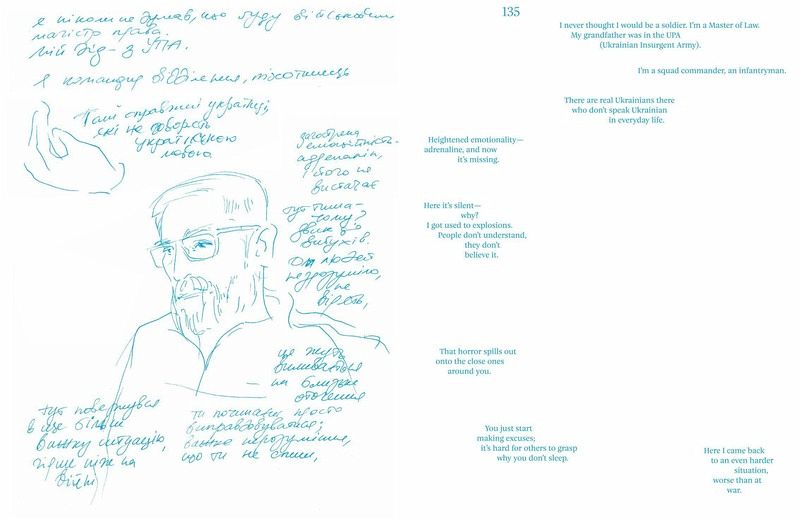 я ніколи не думав, що буду військовим
магістр права.
мій дід - з УПА.
я командир відділення, піхотинець
Там справжні українці,
які не говорять
українською
мовою
загострена
емоційність-
адреналін,
і того не
вистачає
тут тиша-
чому?
звик до
вибухів.
людей
незрозуміло,
не
вірять,
цей жах
виливається
на близьке
оточення
тут повернувся
в ще більш
важку ситуацію,
гірше ніж на
війні
ти починаєш просто
виправдовуватися;
важке нерозуміння,
що ти не спиш,
135
I never thought I would be a soldier. I'm a Master of Law.
My grandfather was in the UPA
(Ukrainian Insurgent Army).
I'm a squad commander, an infantryman.
There are real Ukrainians there
who don't speak Ukrainian
in everyday life.
Heightened emotionality—
adrenaline, and now
it's missing.
Here it's silent—
why?
I got used to explosions.
People don't understand,
they don't
believe it.
That horror spills out
onto the close ones
around you.
You just start
making excuses;
it's hard for others to grasp
why you don't sleep.
Here I came back
to an even harder
situation,
worse than at
war.